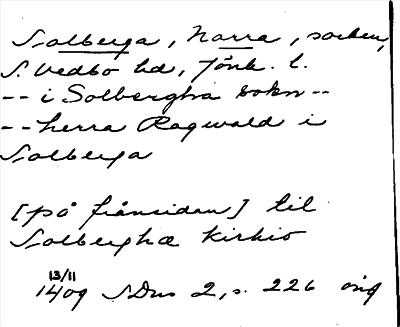 Solberga, Norra, socken,
S. Vedbo hd, Jönk. l.
-- i Solbergha sokn --
-- herra Ragwald i
Solberga
[på frånsidan] til
Solberghæ kirkio
13/11
1409 SDns 2, s. 226 orig